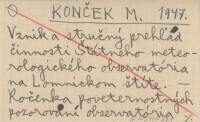 KONČEK M. 1947.
Vznik a stručný prehľad
činnosti Štátneho meteo-
rologického observatória
na Lomnickom štíte.
Ročenka poveternostných
pozorování observatória